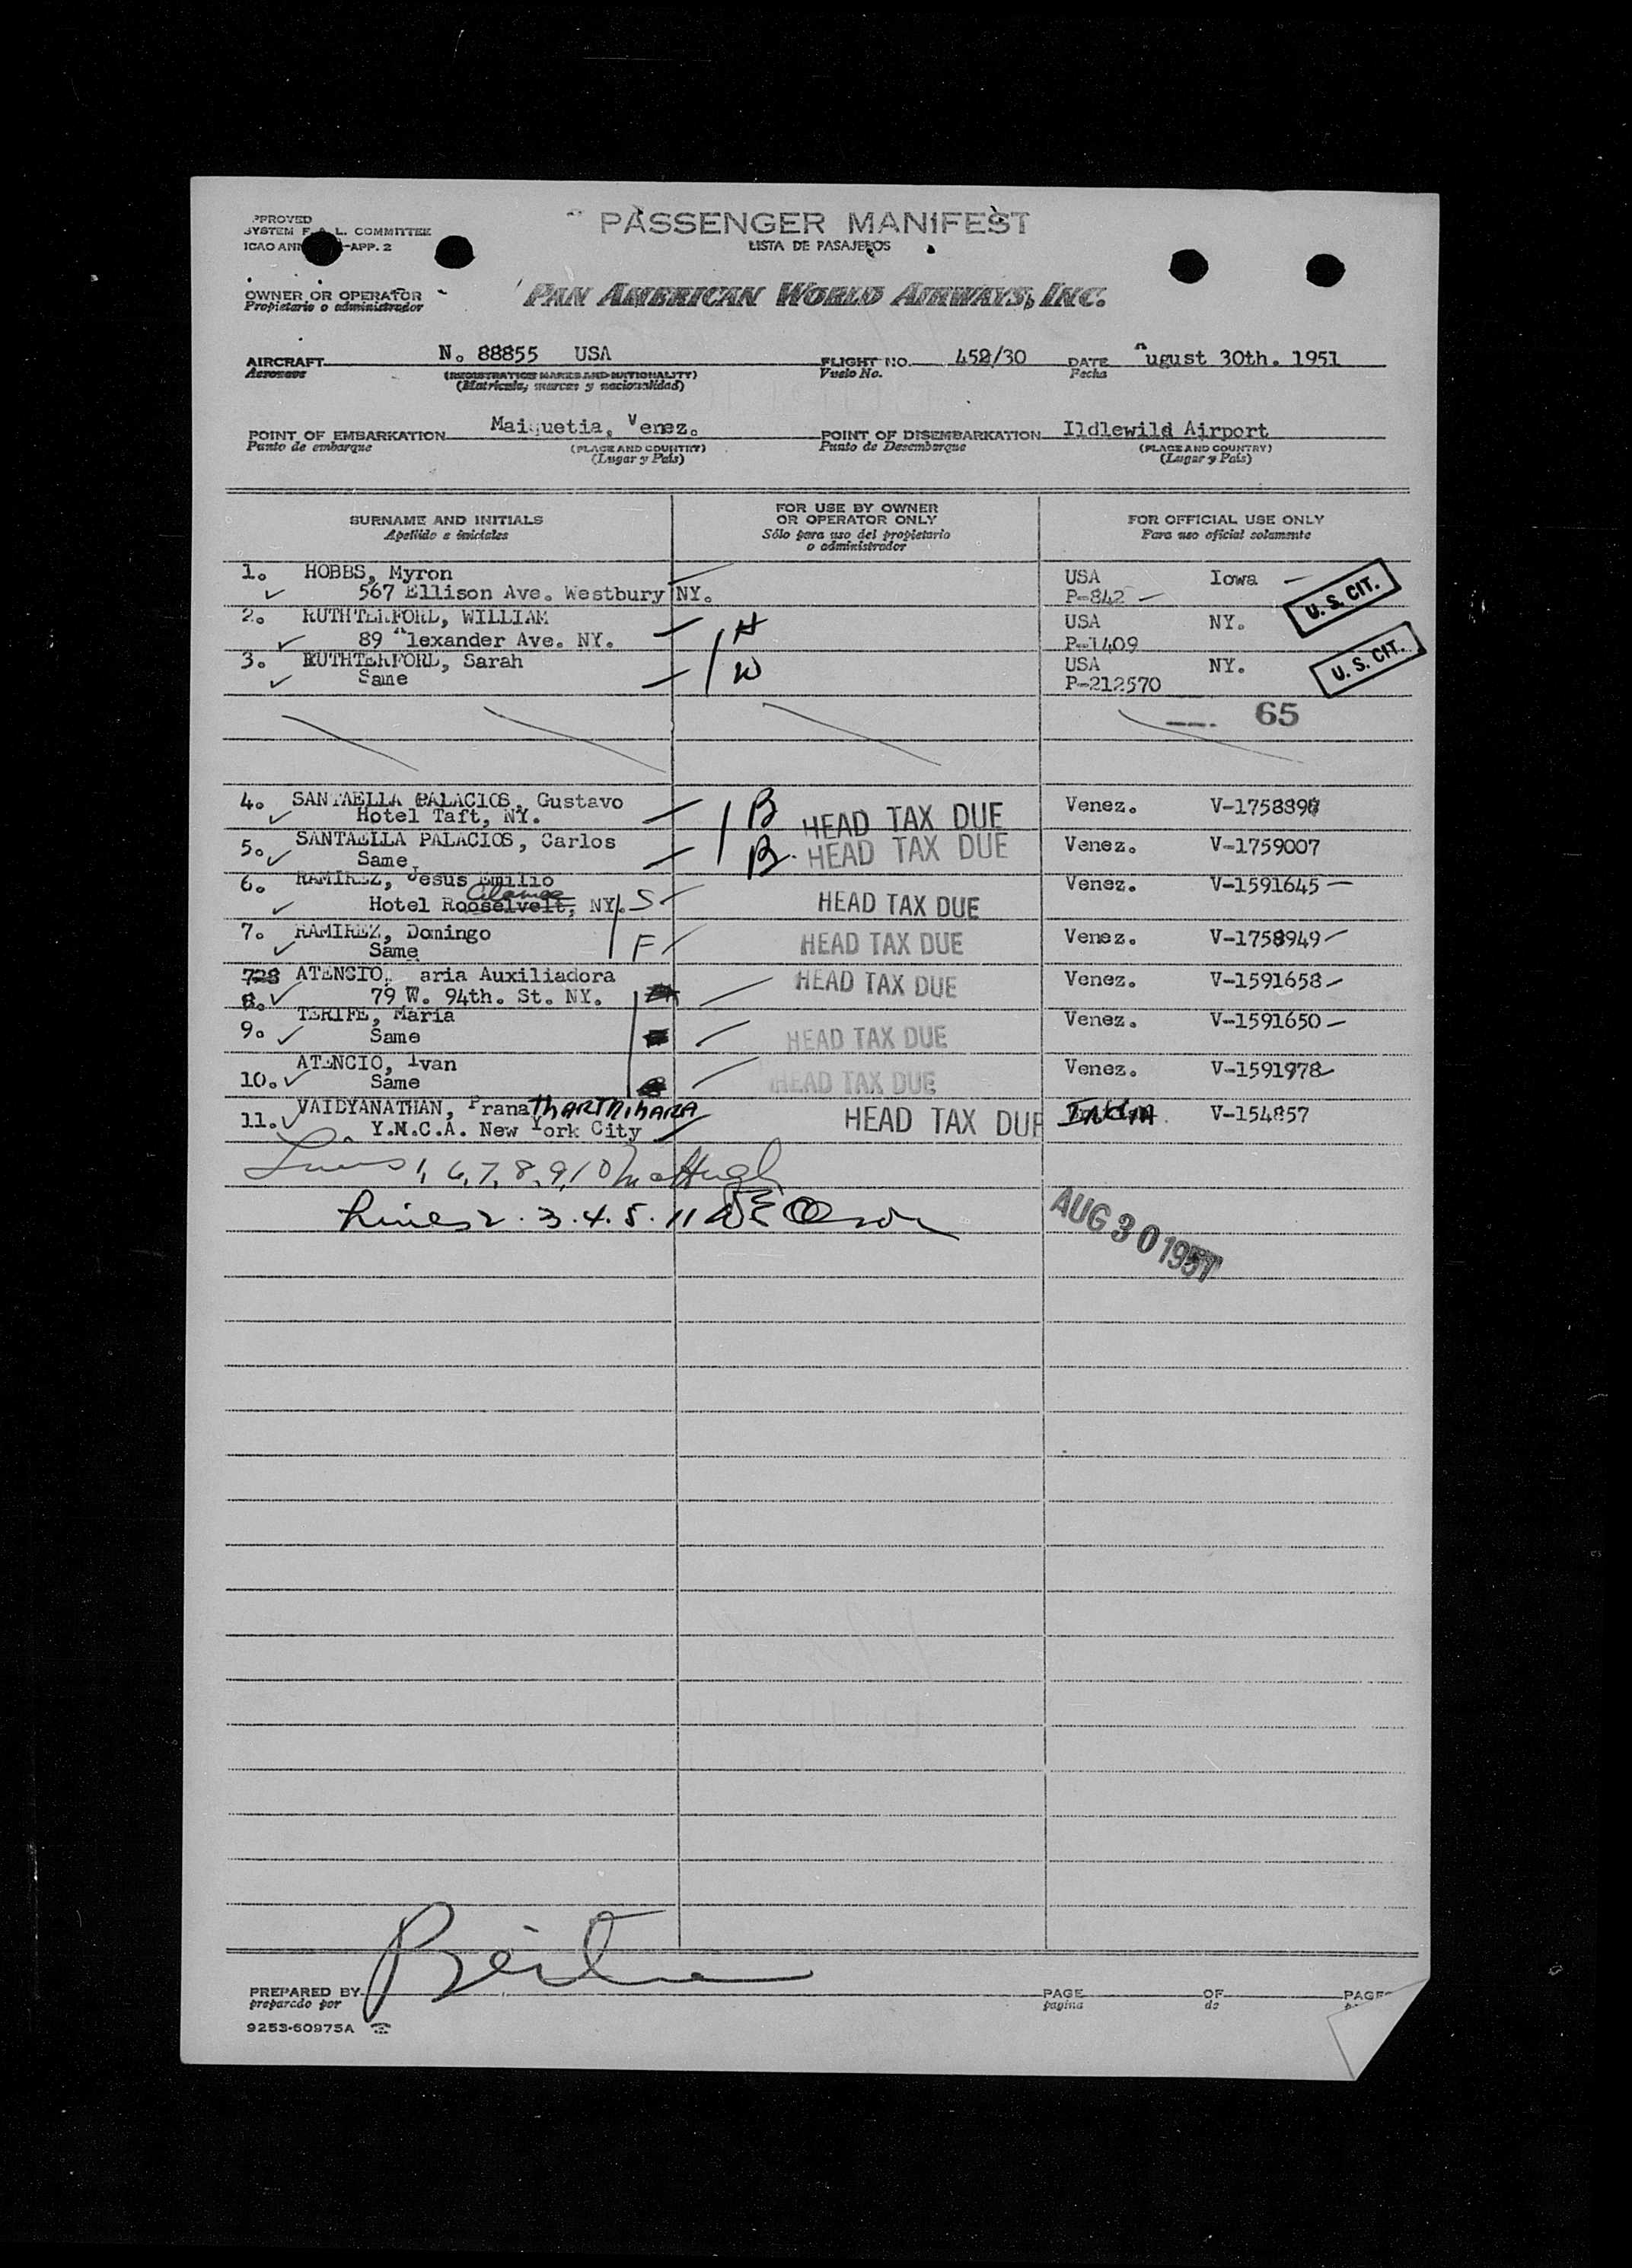 PPROVED
SYSTEM F. A. L. COMMITTEE
ICAO ANN -APP. 2
PASSENGER MANIFEST
LISTA DE PASAJEROS
OWNER OR OPERATOR
Propietario o administrador
PAN AMERICAN WORLD AIRWAYS, INC.
AIRCRAFT N. 88855 USA FLIGHT NO. 452/30 DATE August 30th. 1951
Aeronave (REGISTRATION MARKS AND NATIONALITY) Vuelo No. Fecha
(Matrícula, marcas y nacionalidad)
POINT OF EMBARKATION Maiquetia, Venez. POINT OF DISEMBARKATION Ildlewild Airport
Punto de embarque (PLACE AND COUNTRY) Punto de Desembarque (PLACE AND COUNTRY)
(Lugar y País) (Lugar y País)
SURNAME AND INITIALS FOR USE BY OWNER OR OPERATOR ONLY FOR OFFICIAL USE ONLY
Apellido e iniciales Sólo para uso del propietario o administrador Para uso oficial solamente
1. HOBBS, Myron USA Iowa U. S. CIT.
567 Ellison Ave. Westbury NY. P-842
2. RUTHTERFORD, WILLIAM H USA NY.
89 Alexander Ave. NY. P-1409
3. RUTHTERFORD, Sarah W USA NY. U. S. CIT.
Same P-212570
65
4. SANTAELLA PALACIOS, Gustavo B HEAD TAX DUE Venez. V-1758898
Hotel Taft, NY.
5. SANTAELLA PALACIOS, Carlos B. HEAD TAX DUE Venez. V-1759007
Same
6. RAMIREZ, Jesus Emilio Venez. V-1591645
Hotel Rooselvelt, NY. S HEAD TAX DUE
7. RAMIREZ, Domingo F HEAD TAX DUE Venez. V-1758949
Same
728 ATENCIO, aria Auxiliadora HEAD TAX DUE Venez. V-1591658
8. 79 W. 94th. St. NY.
TERIFE, Maria Venez. V-1591650
9. Same HEAD TAX DUE
ATENCIO, Ivan Venez. V-1591978
10. Same HEAD TAX DUE
VAIDYANATHAN, PranaTHARTHIHARA HEAD TAX DUE INDIA V-154857
11. Y.M.C.A. New York City
Lines 1, 6, 7, 8, 9, 10 McHugh
Lines 2. 3. 4. 5. 11 Olson
AUG 30 1951
PREPARED BY PAGE OF PAGES
preparado por página de
9253-60975A